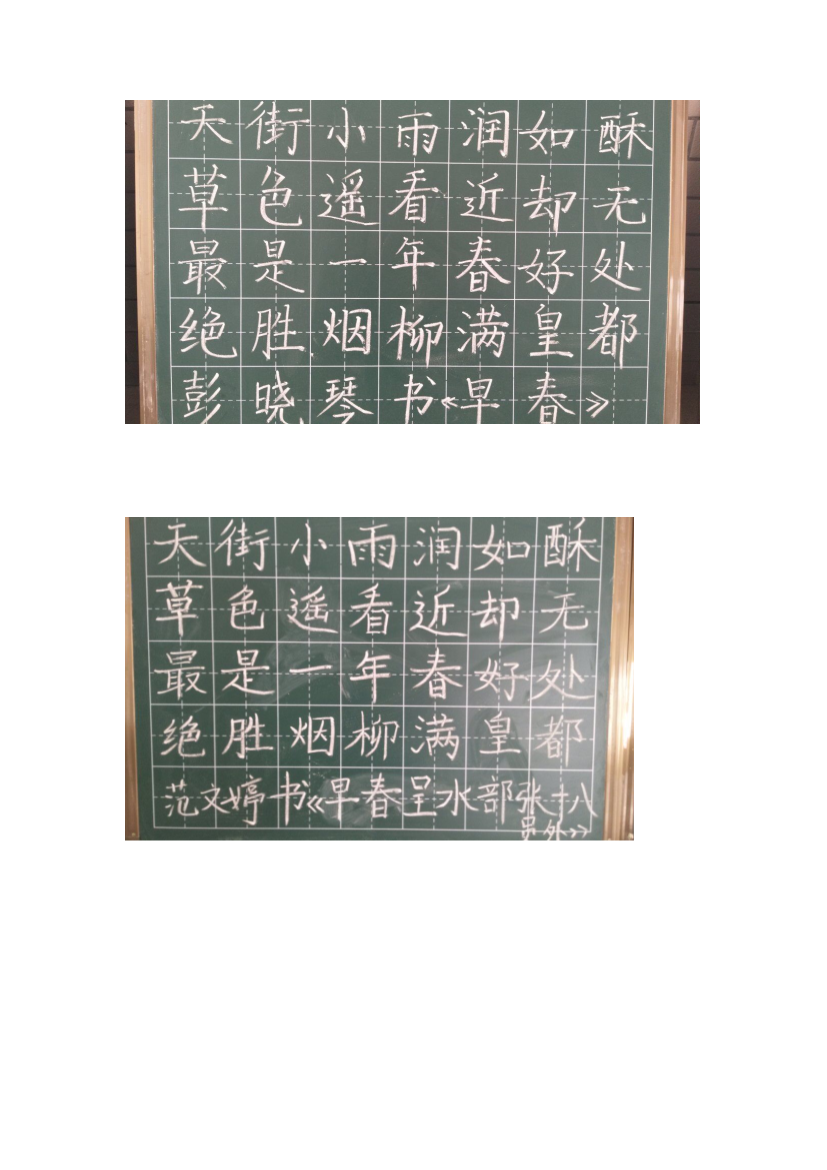 天街小雨润如酥
草色遥看近却无
最是一年春好处
绝胜烟柳满皇都
彭晓琴书《早春》
天街小雨润如酥
草色遥看近却无
最是一年春好处
绝胜烟柳满皇都
范文婷书《早春呈水部张十八
员外》